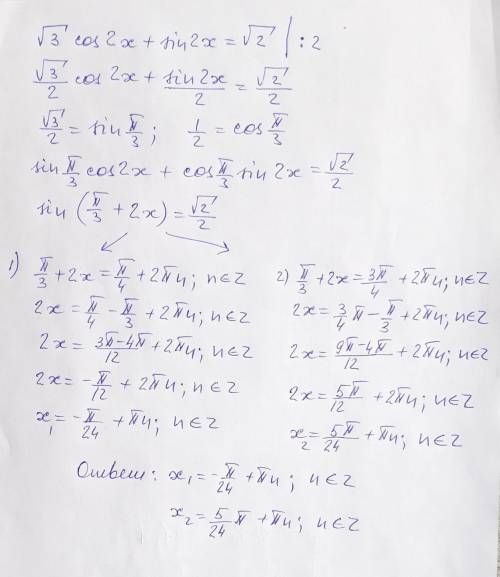 √3 cos2x + sin2x = √2 | : 2
√3/2 cos 2x + sin 2x/2 = √2/2
√3/2 = sin π/3 ; 1/2 = cos π/3
sin π/3 cos2x + cos π/3 sin 2x = √2/2
sin (π/3 + 2x) = √2/2
1) π/3 + 2x = π/4 + 2πn; n∈Z
2x = π/4 − π/3 + 2πn; n∈Z
2x = 3π−4π/12 + 2πn; n∈Z
2x = −π/12 + 2πn; n∈Z
x₁ = −π/24 + πn; n∈Z
2) π/3 + 2x = 3π/4 + 2πn; n∈Z
2x = 3/4 π − π/3 + 2πn; n∈Z
2x = 9π−4π/12 + 2πn; n∈Z
2x = 5π/12 + 2πn; n∈Z
x₂ = 5π/24 + πn; n∈Z
Ответ: x₁ = −π/24 + πn; n∈Z
x₂ = 5/24 π + πn; n∈Z